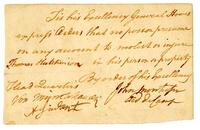 Tis his Excellency General Howes
express Orders that no person presume
on any account to molest or injure
Thomas Hutchinson in his person or property
By order of his Excellency
Head Quarters